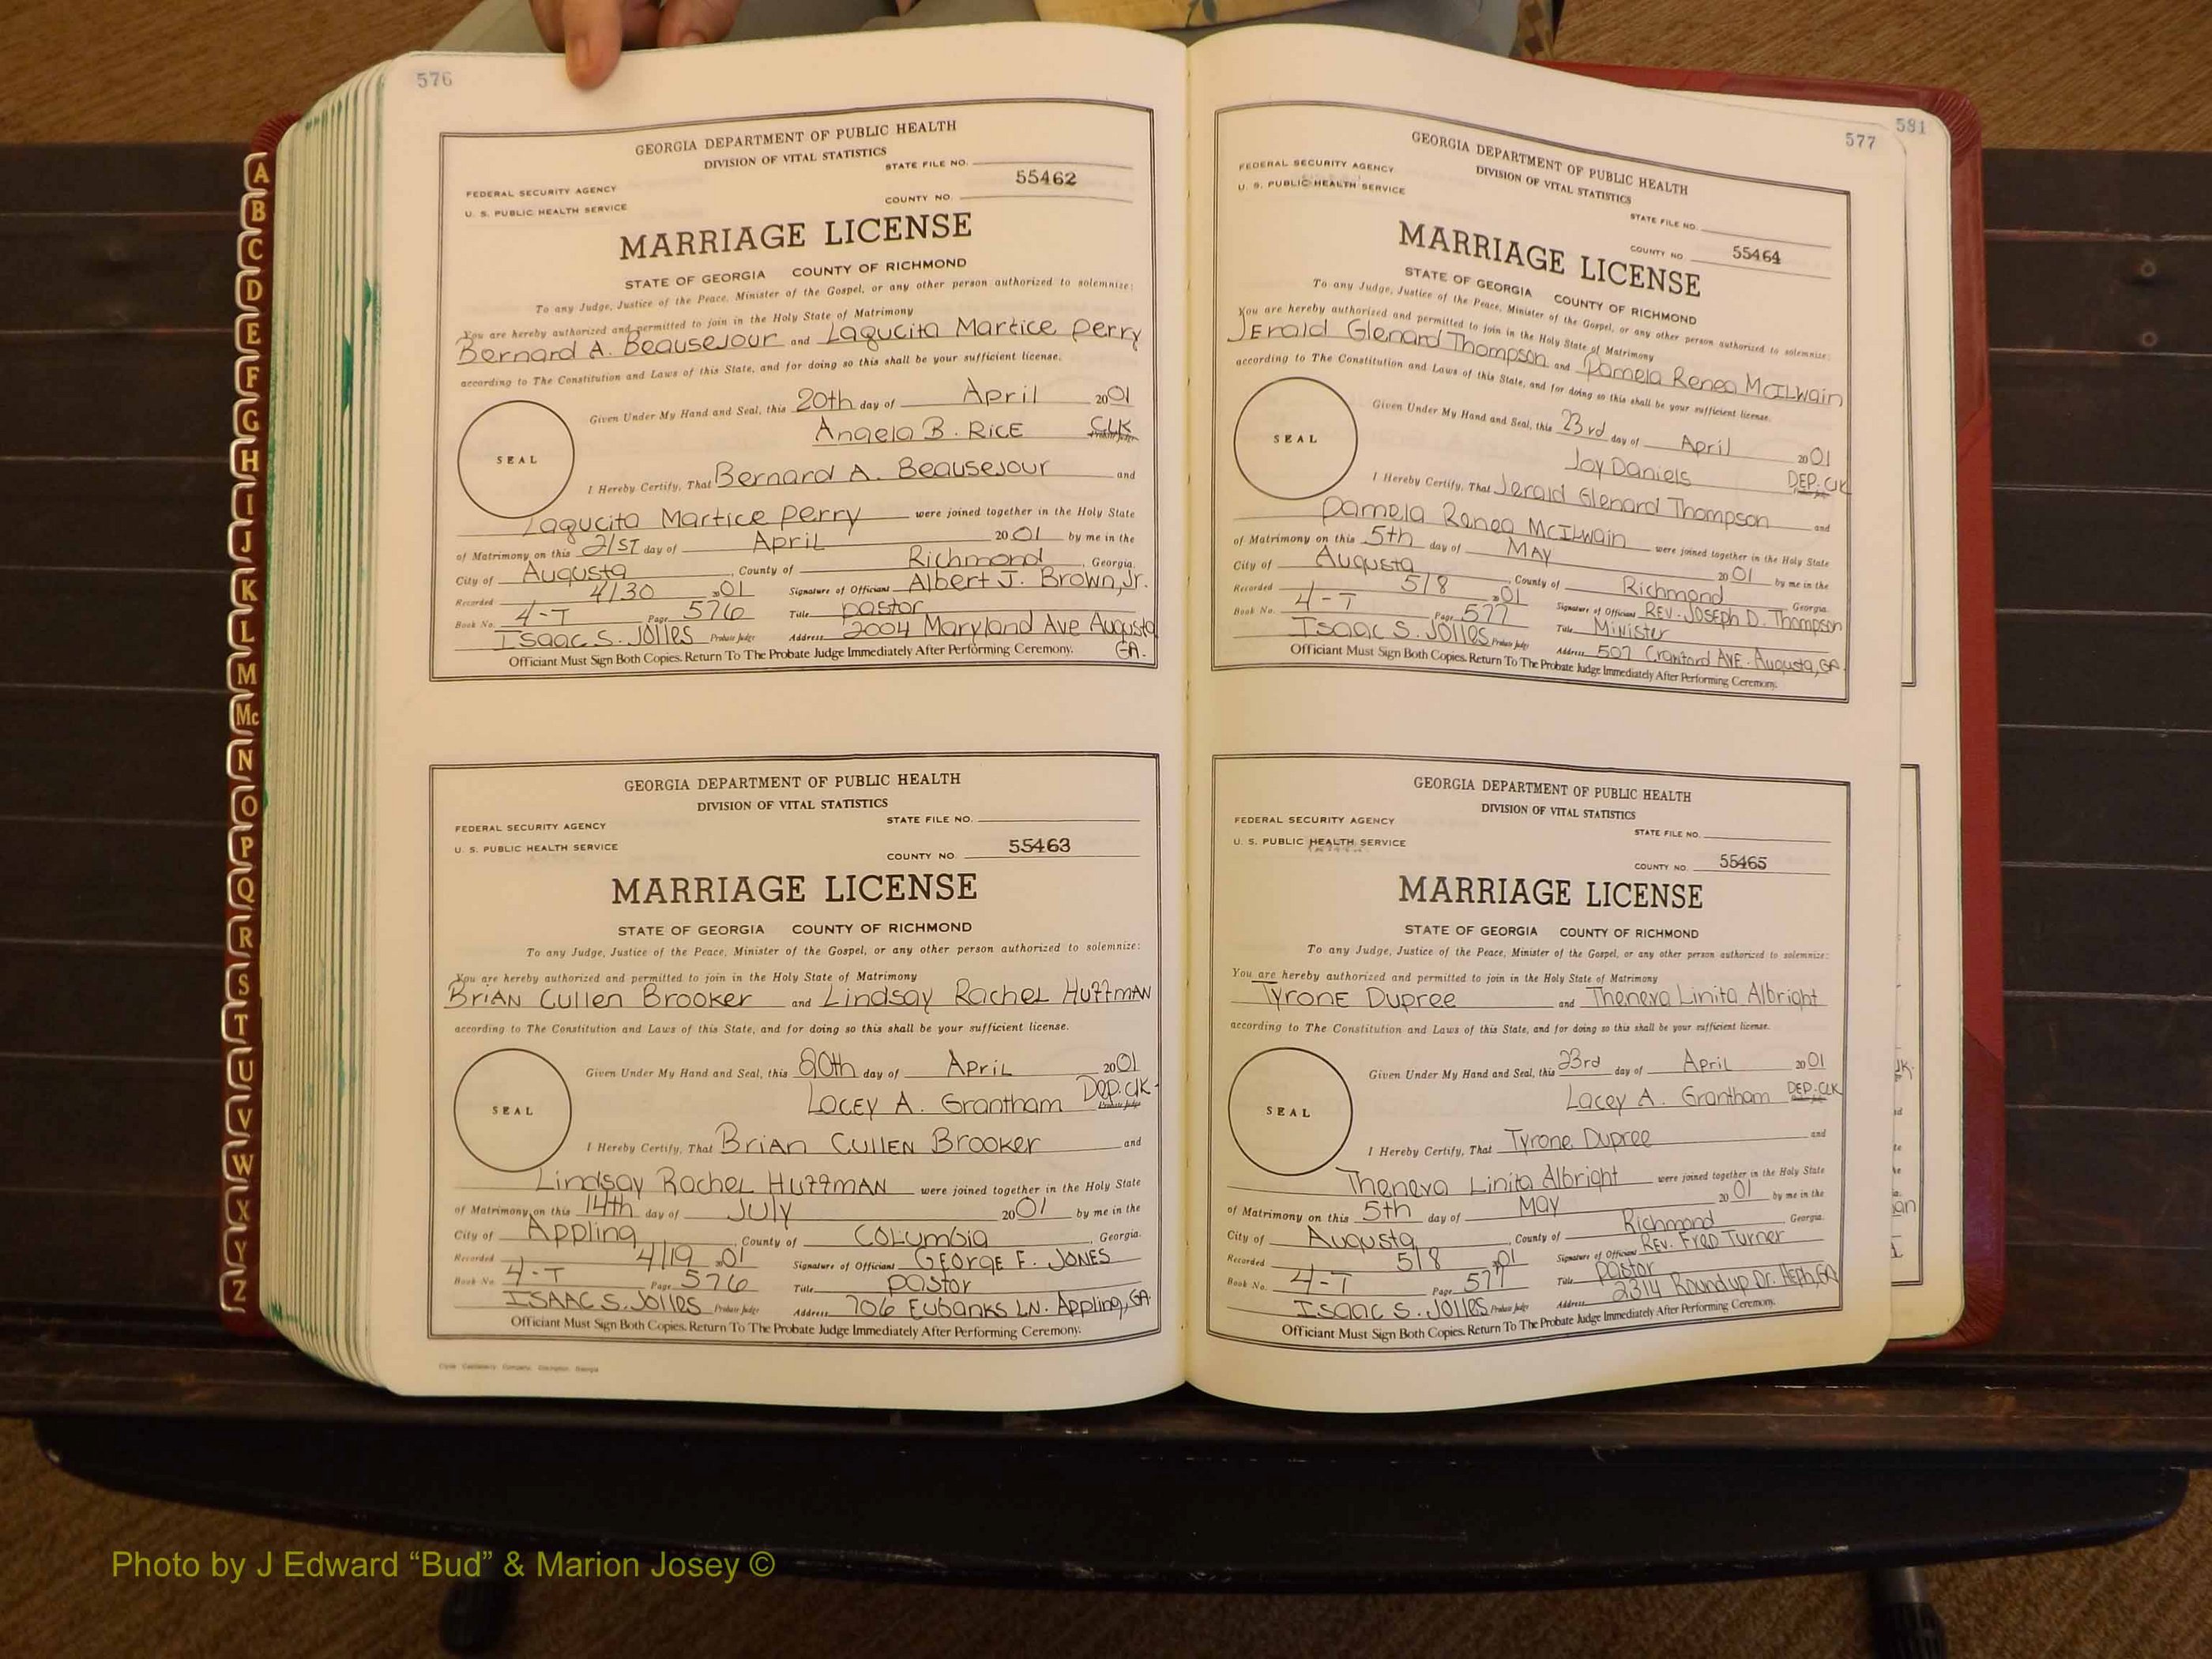 576
GEORGIA DEPARTMENT OF PUBLIC HEALTH
DIVISION OF VITAL STATISTICS
STATE FILE NO.
FEDERAL SECURITY AGENCY
U. S. PUBLIC HEALTH SERVICE
COUNTY NO. 55462
MARRIAGE LICENSE
STATE OF GEORGIA COUNTY OF RICHMOND
To any Judge, Justice of the Peace, Minister of the Gospel, or any other person authorized to solemnize:
You are hereby authorized and permitted to join in the Holy State of Matrimony
Bernard A. Beausejour and Laqucita Martice Perry
according to The Constitution and Laws of this State, and for doing so this shall be your sufficient license.
Given Under My Hand and Seal, this 20th day of April 2001
Angela B. Rice CLK
SEAL
I Hereby Certify, That Bernard A. Beausejour and
Laqucita Martice Perry were joined together in the Holy State
of Matrimony on this 21ST day of April 2001 by me in the
City of Augusta, County of Richmond, Georgia.
Recorded 4/30 2001 Signature of Officiant Albert J. Brown, Jr.
Book No. 4-T Page 576 Title Pastor
Isaac S. Jolles Probate Judge Address 2004 Maryland Ave Augusta GA.
Officiant Must Sign Both Copies. Return To The Probate Judge Immediately After Performing Ceremony.
GEORGIA DEPARTMENT OF PUBLIC HEALTH
DIVISION OF VITAL STATISTICS
STATE FILE NO.
FEDERAL SECURITY AGENCY
U. S. PUBLIC HEALTH SERVICE
COUNTY NO. 55463
MARRIAGE LICENSE
STATE OF GEORGIA COUNTY OF RICHMOND
To any Judge, Justice of the Peace, Minister of the Gospel, or any other person authorized to solemnize:
You are hereby authorized and permitted to join in the Holy State of Matrimony
Brian Cullen Brooker and Lindsay Rachel Huffman
according to The Constitution and Laws of this State, and for doing so this shall be your sufficient license.
Given Under My Hand and Seal, this 20th day of April 2001
Lacey A. Grantham Dep. Clk
SEAL
I Hereby Certify, That Brian Cullen Brooker and
Lindsay Rachel Huffman were joined together in the Holy State
of Matrimony on this 14th day of July 2001 by me in the
City of Appling, County of Columbia, Georgia.
Recorded 4/19 2001 Signature of Officiant George F. Jones
Book No. 4-T Page 576 Title Pastor
Isaac S. Jolles Probate Judge Address 706 Eubanks Ln. Appling, GA.
Officiant Must Sign Both Copies. Return To The Probate Judge Immediately After Performing Ceremony.
577
GEORGIA DEPARTMENT OF PUBLIC HEALTH
DIVISION OF VITAL STATISTICS
FEDERAL SECURITY AGENCY
U. S. PUBLIC HEALTH SERVICE
STATE FILE NO.
COUNTY NO 55464
MARRIAGE LICENSE
STATE OF GEORGIA COUNTY OF RICHMOND
To any Judge, Justice of the Peace, Minister of the Gospel, or any other person authorized to solemnize:
You are hereby authorized and permitted to join in the Holy State of Matrimony
Jerald Glenard Thompson and Pamela Renea McIlwain
according to The Constitution and Laws of this State, and for doing so this shall be your sufficient license.
Given Under My Hand and Seal, this 23rd day of April 2001
Joy Daniels DEP. Clk
SEAL
I Hereby Certify, That Jerald Glenard Thompson and
Pamela Renea McIlwain were joined together in the Holy State
of Matrimony on this 5th day of May 2001 by me in the
City of Augusta, County of Richmond Georgia.
Recorded 5/8 2001 Signature of Officiant Rev. Joseph D. Thompson
Book No. 4-T Page 577 Title Minister
Isaac S. Jolles Probate Judge Address 507 Crawford Ave. Augusta, GA.
Officiant Must Sign Both Copies. Return To The Probate Judge Immediately After Performing Ceremony.
GEORGIA DEPARTMENT OF PUBLIC HEALTH
DIVISION OF VITAL STATISTICS
FEDERAL SECURITY AGENCY
STATE FILE NO.
U. S. PUBLIC HEALTH SERVICE
COUNTY NO. 55465
MARRIAGE LICENSE
STATE OF GEORGIA COUNTY OF RICHMOND
To any Judge, Justice of the Peace, Minister of the Gospel, or any other person authorized to solemnize:
You are hereby authorized and permitted to join in the Holy State of Matrimony
Tyrone Dupree and Theneva Linita Albright
according to The Constitution and Laws of this State, and for doing so this shall be your sufficient license.
Given Under My Hand and Seal, this 23rd day of April 2001
Lacey A. Grantham DEP. CLK
SEAL
I Hereby Certify, That Tyrone Dupree and
Theneva Linita Albright were joined together in the Holy State
of Matrimony on this 5th day of May 2001 by me in the
City of Augusta, County of Richmond Georgia.
Recorded 5/8 2001 Signature of Officiant Rev. Fred Turner
Book No. 4-T Page 577 Title Pastor
Isaac S. Jolles Probate Judge Address 2314 Roundup Dr. Heph, GA
Officiant Must Sign Both Copies. Return To The Probate Judge Immediately After Performing Ceremony.
581
A
B
C
D
E
F
G
H
I
J
K
L
M
Mc
N
O
P
Q
R
S
T
U
V
W
X
Y
Z
Photo by J Edward “Bud” & Marion Josey ©